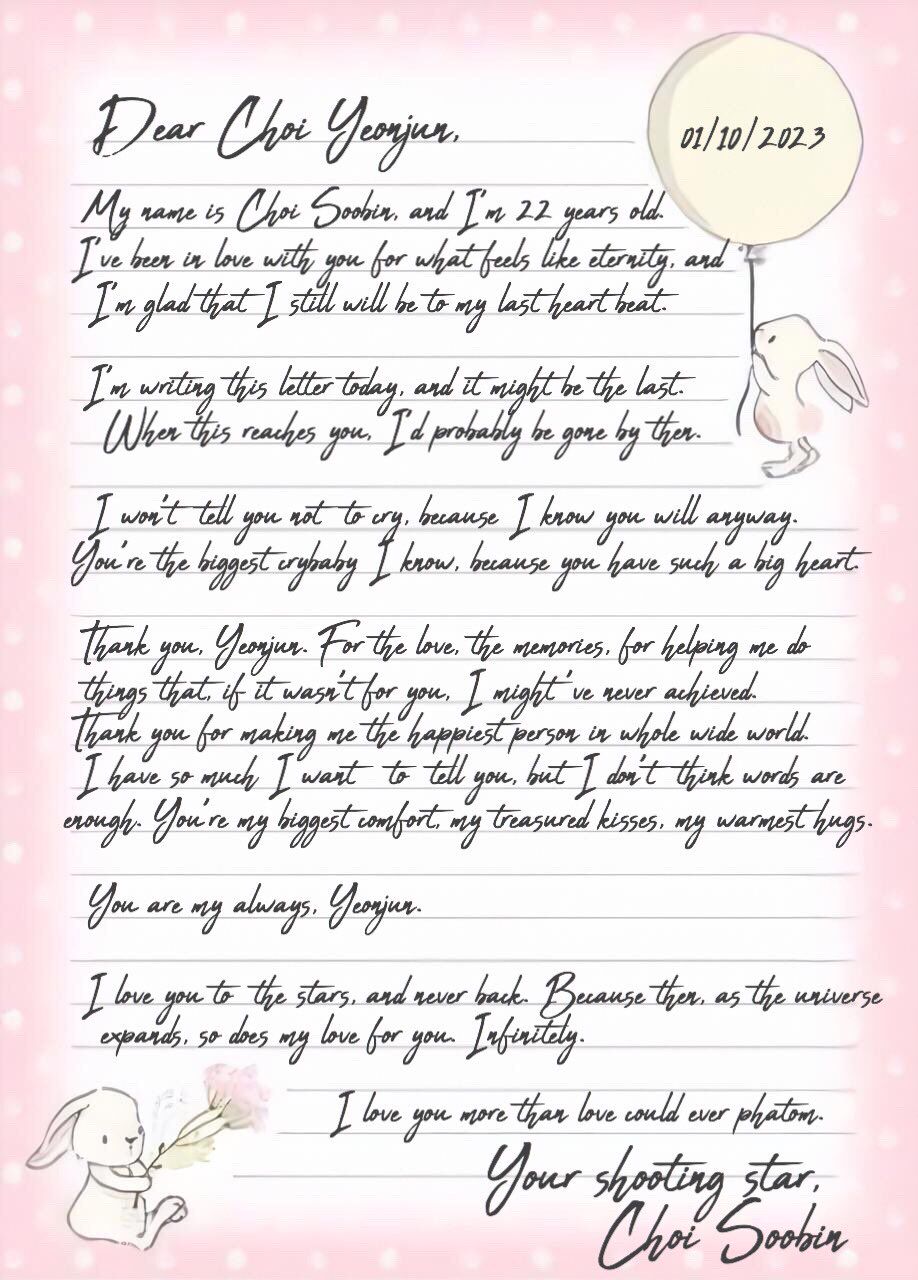 Dear Choi Yeonjun,
01/10/2023
My name is Choi Soobin, and I'm 22 years old.
I've been in love with you for what feels like eternity, and
I'm glad that I still will be to my last heart beat.
I'm writing this letter today, and it might be the last.
When this reaches you, I'd probably be gone by then.
I won't tell you not to cry, because I know you will anyway.
You're the biggest crybaby I know, because you have such a big heart.
Thank you, Yeonjun. For the love, the memories, for helping me do
things that, if it wasn't for you, I might've never achieved.
Thank you for making me the happiest person in whole wide world.
I have so much I want to tell you, but I don't think words are
enough. You're my biggest comfort, my treasured kisses, my warmest hugs.
You are my always, Yeonjun.
I love you to the stars, and never back. Because then, as the universe
expands, so does my love for you. Infinitely.
I love you more than love could ever phatom.
Your shooting star,
Choi Soobin